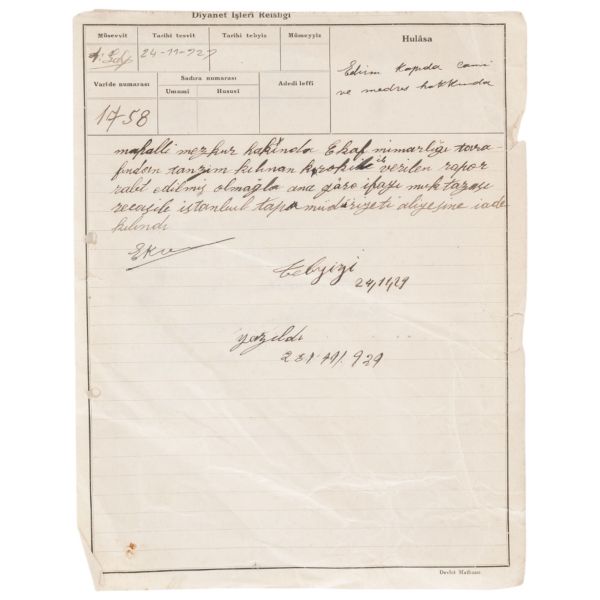 Diyanet İşleri Reisliği
Müsevvit
Tarihi tesvit
Tarihi tebyiz
Mübeyyiz
Hulâsa
24-11-929
Edirne kapıda cami
ve medres hakkında
Varide numarası
Sadıra numarası
Umumi
Hususi
Adedi leffi
1758
mahalli mezkur hakkında Efkaf mimarlığı tara
fından tanzim kılınan kroki ile verilen rapor
rabt edilmiş olmağla ana göre ifayı muktazası
recasile istanbul tapu müdüriyeti aliyesine iade
kılındı
tebyizi
24/11/29
yazıldı
Devlet Matbaası